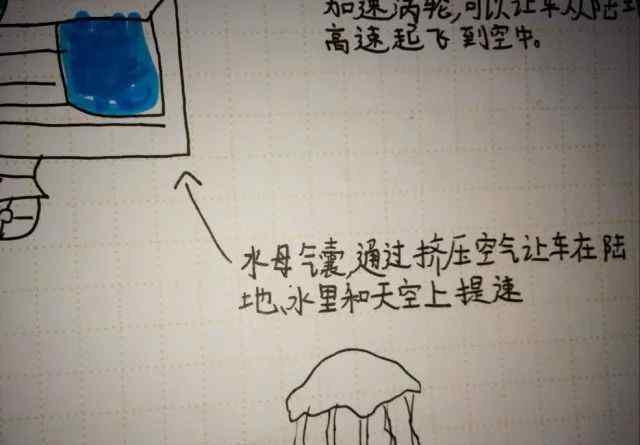 加速涡轮,可以让车从陆地
高速起飞到空中。
水母气囊,通过挤压空气让车在陆
地、水里和天空上提速